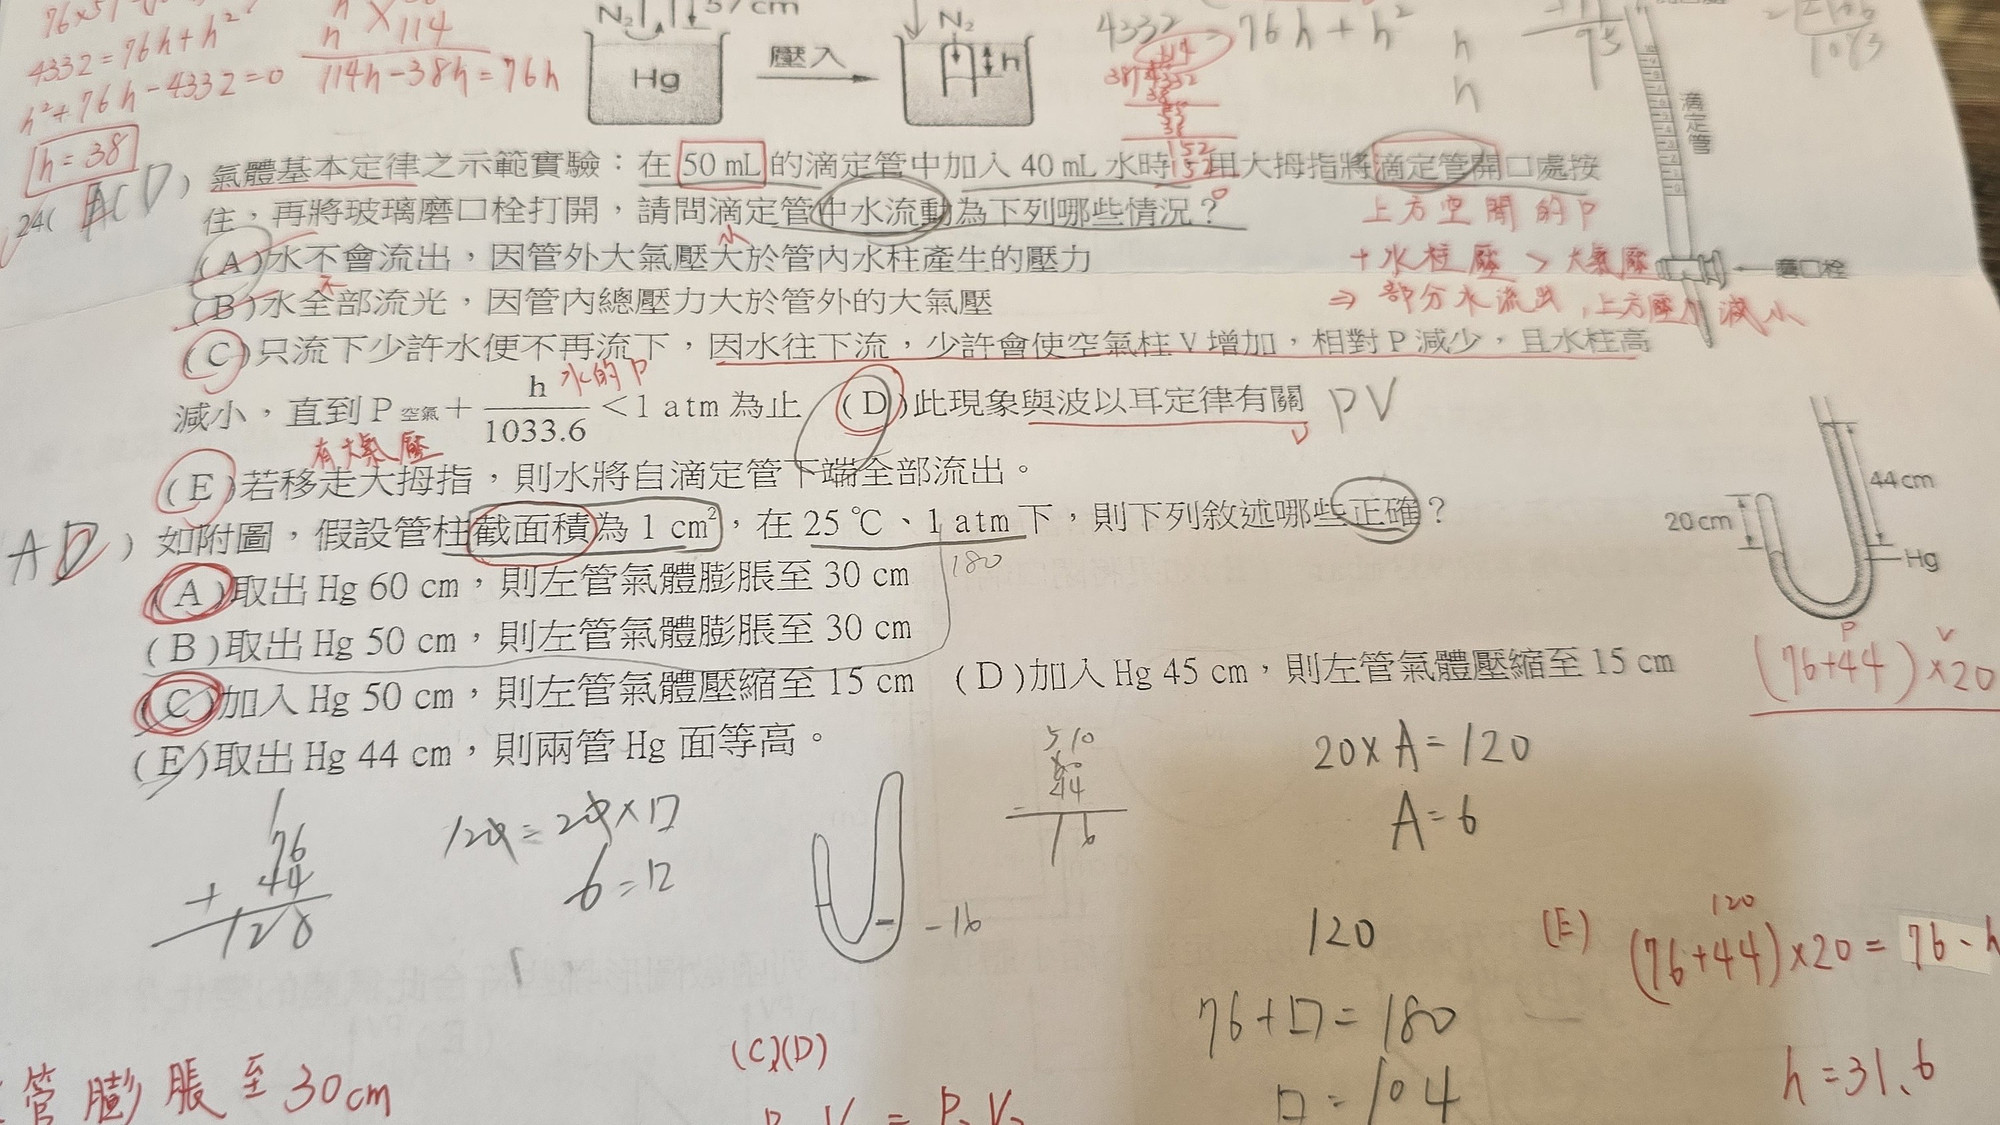 4332=76h+h²
h²+76h-4332=0
h=38
×114
114h-38h=76h
N₂
57cm
Hg
壓入
N₂
h
4332
76h+h²
h
h
75
1083
滴定管
24(
ACD)
氣體基本定律之示範實驗：在 50 mL 的滴定管中加入 40 mL 水時，用大拇指將滴定管開口處按
住，再將玻璃磨口栓打開，請問滴定管中水流動為下列哪些情況？
上方空間的P
(A)水不會流出，因管外大氣壓大於管內水柱產生的壓力
小
+水柱壓 > 大氣壓
磨口栓
(B)水全部流光，因管內總壓力大於管外的大氣壓
不
⇒部分水流出，上方壓力減小
(C)只流下少許水便不再流下，因水往下流，少許會使空氣柱 V 增加，相對 P 減少，且水柱高
水的P
減小，直到 P 空氣 + h/1033.6 <1 atm 為止 (D)此現象與波以耳定律有關
PV
有大氣壓
(E)若移走大拇指，則水將自滴定管下端全部流出。
44 cm
20 cm
Hg
AD
)
如附圖，假設管柱截面積為 1 cm²，在 25 ℃、1 atm 下，則下列敘述哪些正確？
180
(A)取出 Hg 60 cm，則左管氣體膨脹至 30 cm
(B)取出 Hg 50 cm，則左管氣體膨脹至 30 cm
P V
(76+44)×20
(C)加入 Hg 50 cm，則左管氣體壓縮至 15 cm (D)加入 Hg 45 cm，則左管氣體壓縮至 15 cm
(E)取出 Hg 44 cm，則兩管 Hg 面等高。
20×A=120
A=6
76
+ 44
120
6=口
44
16
-16
120
76+口=180
口=104
(E)
120
(76+44)×20=76-h
h=31.6
管膨脹至30cm
(C)(D)